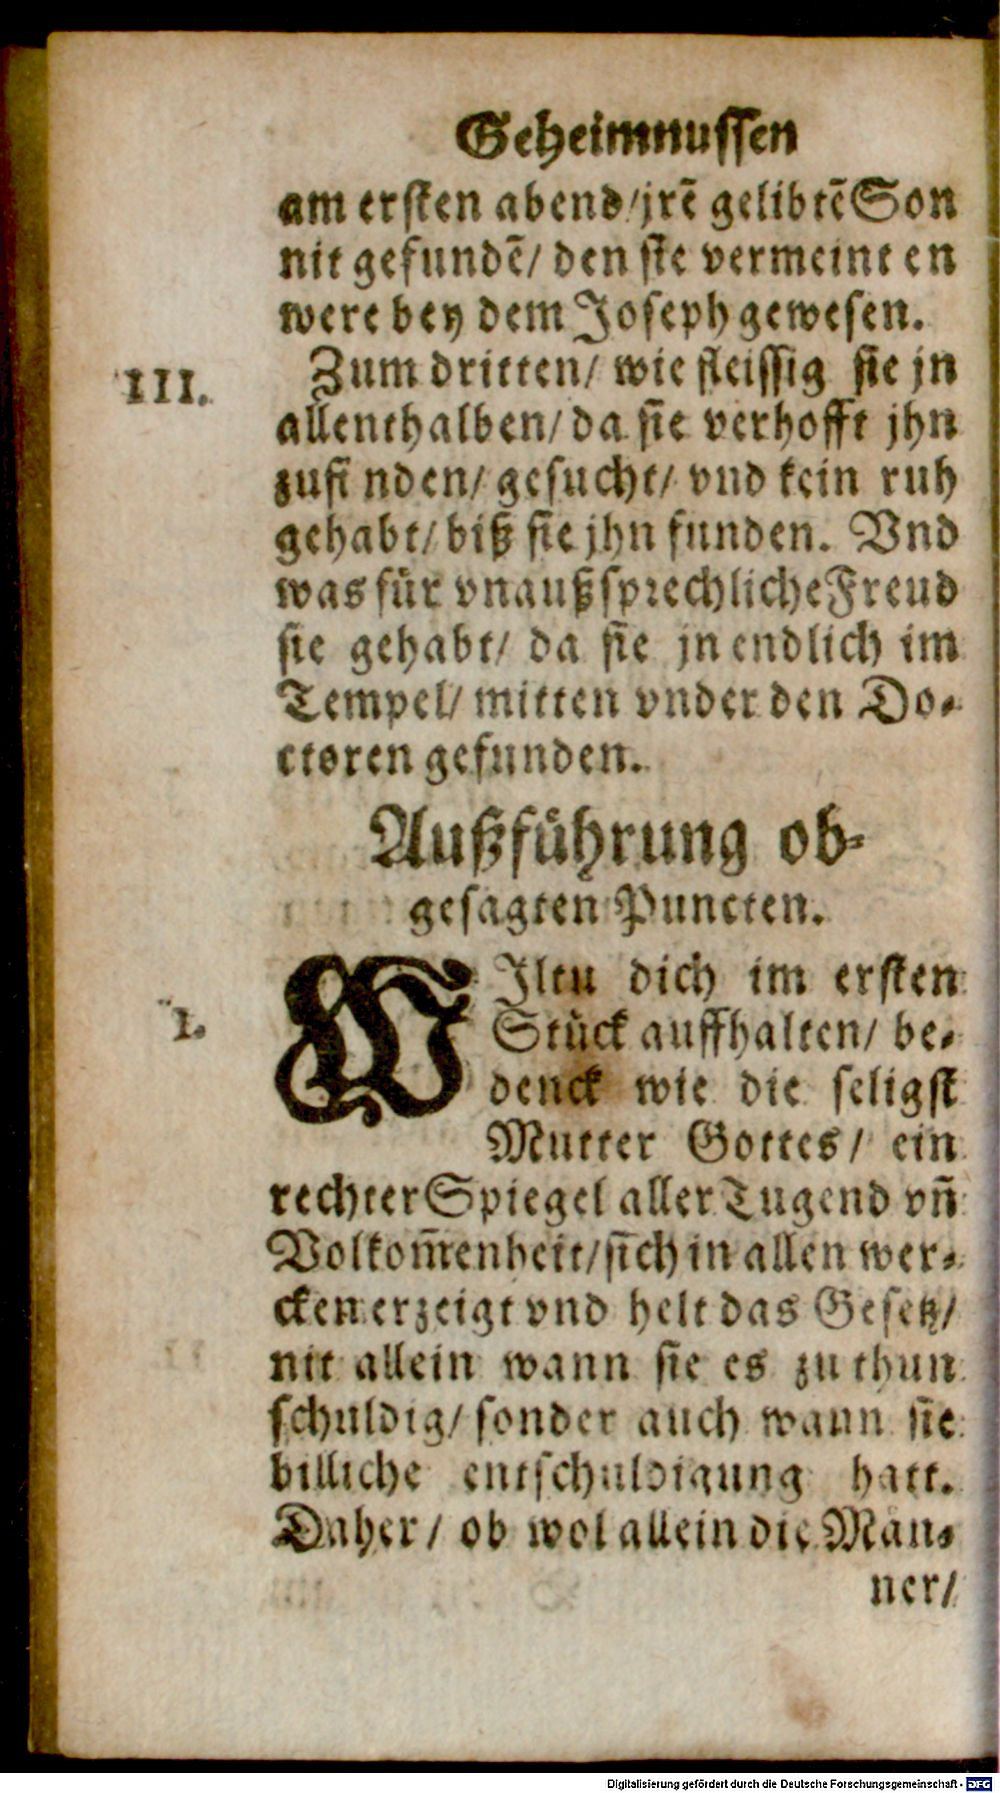 Geheimnussen
am ersten abend/jrē gelibtē Son
nit gefundē/ den sie vermeint en
were bey dem Joseph gewesen.
III.
Zum dritten/ wie fleissig sie jn
allenthalben/ da sie verhofft jhn
zufinden/ gesucht/ vnd kein ruh
gehabt/ biß sie jhn funden. Vnd
was für vnaußsprechliche Freud
sie gehabt/ da sie jn endlich im
Tempel/ mitten vnder den Do-
ctoren gefunden.
Außführung ob-
gesagten Puncten.
I.
WJltu dich im ersten
Stück auffhalten/ be-
denck wie die seligst
Mutter Gottes/ ein
rechter Spiegel aller Tugend vñ
Volkom̄enheit/sich in allen wer-
cken erzeigt vnd helt das Gesetz/
nit allein wann sie es zu thun
schuldig/ sonder auch wann sie
billiche entschuldigung hatt.
Daher/ ob wol allein die Män-
ner/
Digitalisierung gefördert durch die Deutsche Forschungsgemeinschaft - DFG